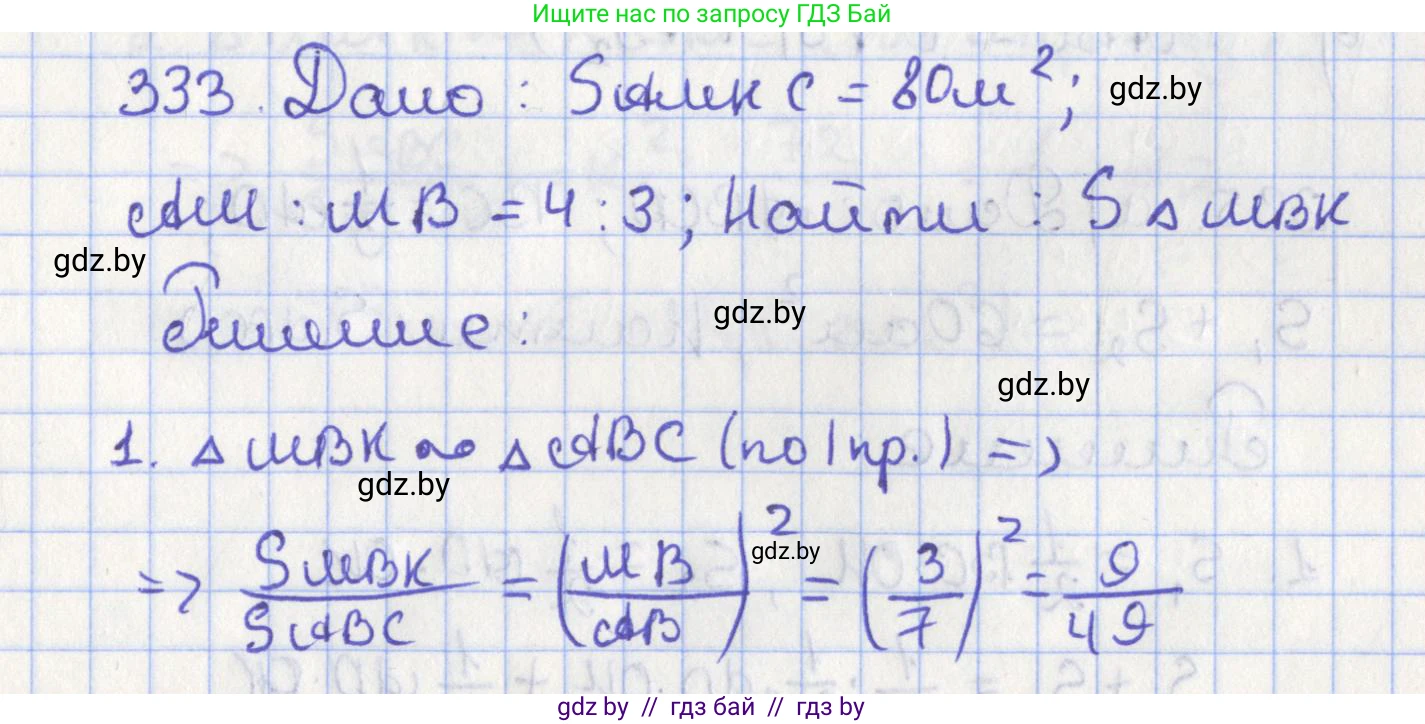 Ищите нас по запросу ГДЗ Бай
333. Дано : SAMKC = 80м²; gdz.by
AM : MB = 4 : 3; Найти : S △ MBK
gdz.by
Решение :
gdz.by
gdz.by
1. △ MBK ∾ △ ABC (по 1 пр.) =>
gdz.by
=> SMBK/SABC = (MB/AB)² = (3/7)² = 9/49
gdz.by
gdz.by // гдз бай // гдз by